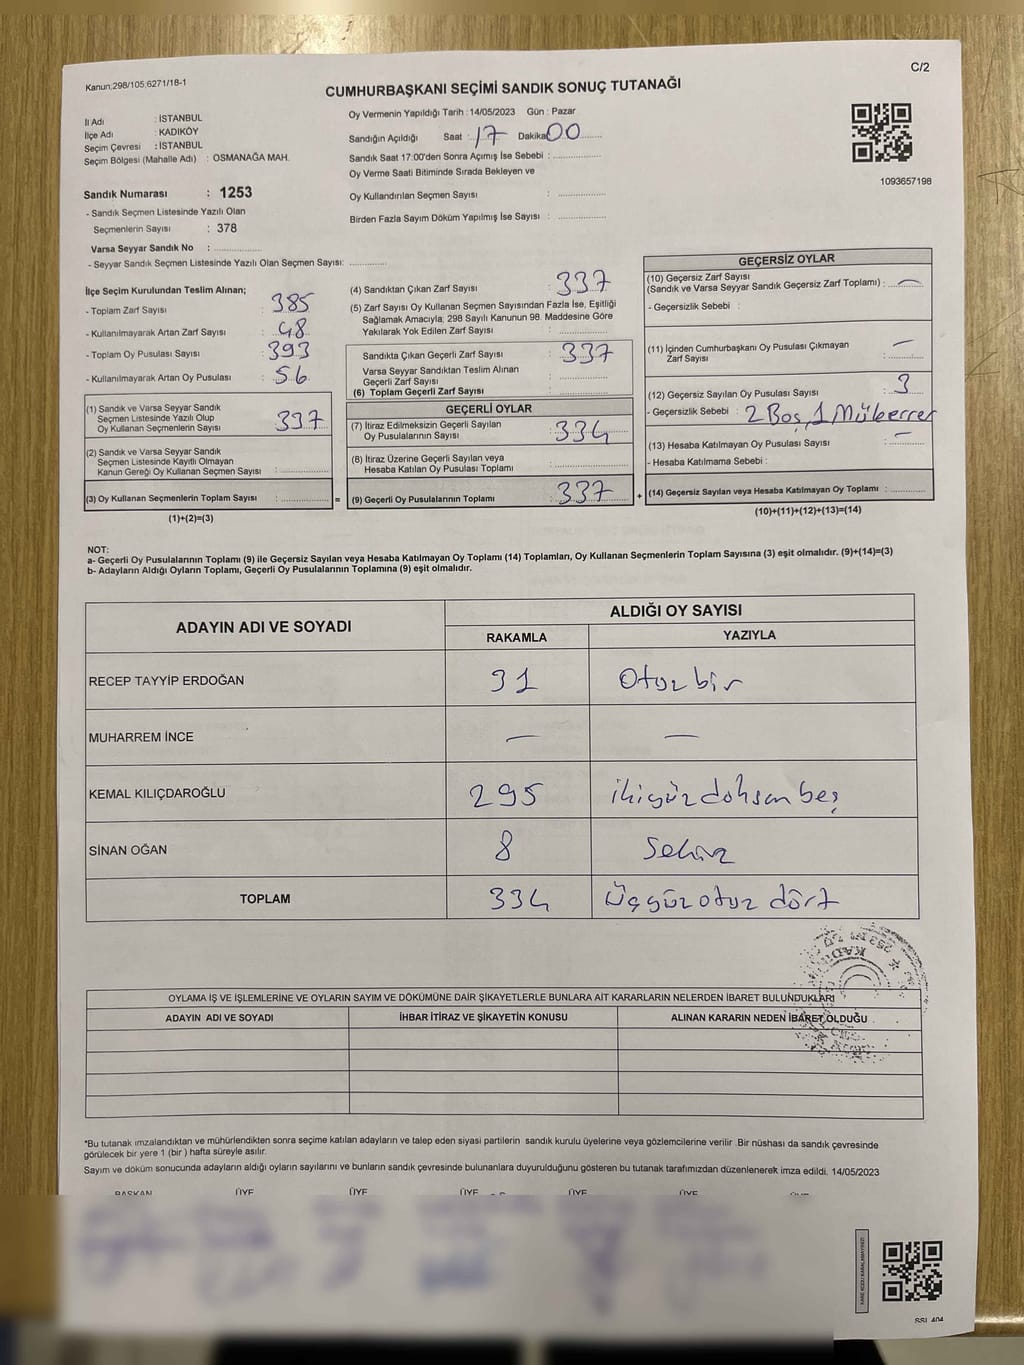 C/2
Kanun;298/105,6271/18-1
CUMHURBAŞKANI SEÇİMİ SANDIK SONUÇ TUTANAĞI
İl Adı : İSTANBUL
İlçe Adı : KADIKÖY
Seçim Çevresi : İSTANBUL
Seçim Bölgesi (Mahalle Adı) : OSMANAĞA MAH.
Sandık Numarası : 1253
- Sandık Seçmen Listesinde Yazılı Olan
Seçmenlerin Sayısı : 378
Varsa Seyyar Sandık No :
- Seyyar Sandık Seçmen Listesinde Yazılı Olan Seçmen Sayısı:
Oy Vermenin Yapıldığı Tarih : 14/05/2023 Gün : Pazar
Sandığın Açıldığı Saat : 17 Dakika 00
Sandık Saat 17:00'den Sonra Açımış İse Sebebi :
Oy Verme Saati Bitiminde Sırada Bekleyen ve
Oy Kullandırılan Seçmen Sayısı :
Birden Fazla Sayım Döküm Yapılmış İse Sayısı :
1093657198
İlçe Seçim Kurulundan Teslim Alınan;
- Toplam Zarf Sayısı : 385
- Kullanılmayarak Artan Zarf Sayısı : 48
- Toplam Oy Pusulası Sayısı : 393
- Kullanılmayarak Artan Oy Pusulası : 56
(1) Sandık ve Varsa Seyyar Sandık
Seçmen Listesinde Yazılı Olup
Oy Kullanan Seçmenlerin Sayısı : 337
(2) Sandık ve Varsa Seyyar Sandık
Seçmen Listesinde Kayıtlı Olmayan
Kanun Gereği Oy Kullanan Seçmen Sayısı :
(3) Oy Kullanan Seçmenlerin Toplam Sayısı :
(1)+(2)=(3)
=
(4) Sandıktan Çıkan Zarf Sayısı : 337
(5) Zarf Sayısı Oy Kullanan Seçmen Sayısından Fazla İse, Eşitliği
Sağlamak Amacıyla, 298 Sayılı Kanunun 98. Maddesine Göre
Yakılarak Yok Edilen Zarf Sayısı :
Sandıkta Çıkan Geçerli Zarf Sayısı : 337
Varsa Seyyar Sandıktan Teslim Alınan
Geçerli Zarf Sayısı :
(6) Toplam Geçerli Zarf Sayısı :
GEÇERLİ OYLAR
(7) İtiraz Edilmeksizin Geçerli Sayılan
Oy Pusulalarının Sayısı : 334
(8) İtiraz Üzerine Geçerli Sayılan veya
Hesaba Katılan Oy Pusulası Toplamı :
(9) Geçerli Oy Pusulalarının Toplamı : 337
+
GEÇERSİZ OYLAR
(10) Geçersiz Zarf Sayısı
(Sandık ve Varsa Seyyar Sandık Geçersiz Zarf Toplamı) : —
- Geçersizlik Sebebi :
(11) İçinden Cumhurbaşkanı Oy Pusulası Çıkmayan
Zarf Sayısı : —
(12) Geçersiz Sayılan Oy Pusulası Sayısı : 3
- Geçersizlik Sebebi : 2 Boş, 1 Müberrer
(13) Hesaba Katılmayan Oy Pusulası Sayısı : —
- Hesaba Katılmama Sebebi :
(14) Geçersiz Sayılan veya Hesaba Katılmayan Oy Toplamı :
(10)+(11)+(12)+(13)=(14)
NOT:
a- Geçerli Oy Pusulalarının Toplamı (9) ile Geçersiz Sayılan veya Hesaba Katılmayan Oy Toplamı (14) Toplamları, Oy Kullanan Seçmenlerin Toplam Sayısına (3) eşit olmalıdır. (9)+(14)=(3)
b- Adayların Aldığı Oyların Toplamı, Geçerli Oy Pusulalarının Toplamına (9) eşit olmalıdır.
ADAYIN ADI VE SOYADI ALDIĞI OY SAYISI
RAKAMLA YAZIYLA
RECEP TAYYİP ERDOĞAN 31 Otuz bir
MUHARREM İNCE — —
KEMAL KILIÇDAROĞLU 295 ikiyüz doksan beş
SİNAN OĞAN 8 Sekiz
TOPLAM 334 Üçyüz otuz dört
OYLAMA İŞ VE İŞLEMLERİNE VE OYLARIN SAYIM VE DÖKÜMÜNE DAİR ŞİKAYETLERLE BUNLARA AİT KARARLARIN NELERDEN İBARET BULUNDUKLARI
ADAYIN ADI VE SOYADI İHBAR İTİRAZ VE ŞİKAYETİN KONUSU ALINAN KARARIN NEDEN İBARET OLDUĞU
*Bu tutanak imzalandıktan ve mühürlendikten sonra seçime katılan adayların ve talep eden siyasi partilerin sandık kurulu üyelerine veya gözlemcilerine verilir .Bir nüshası da sandık çevresinde
görülecek bir yere 1 (bir ) hafta süreyle asılır.
Sayım ve döküm sonucunda adayların aldığı oyların sayılarını ve bunların sandık çevresinde bulunanlara duyurulduğunu gösteren bu tutanak tarafımızdan düzenlenerek imza edildi. 14/05/2023
BAŞKAN ÜYE ÜYE ÜYE ÜYE ÜYE